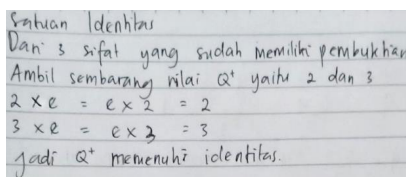 Satuan Identitas
Dari 3 sifat yang sudah memiliki pembuktian
Ambil sembarang nilai Q⁺ yaitu 2 dan 3
2 × e = e × 2 = 2
3 × e = e × 3 = 3
Jadi Q⁺ memenuhi identitas.